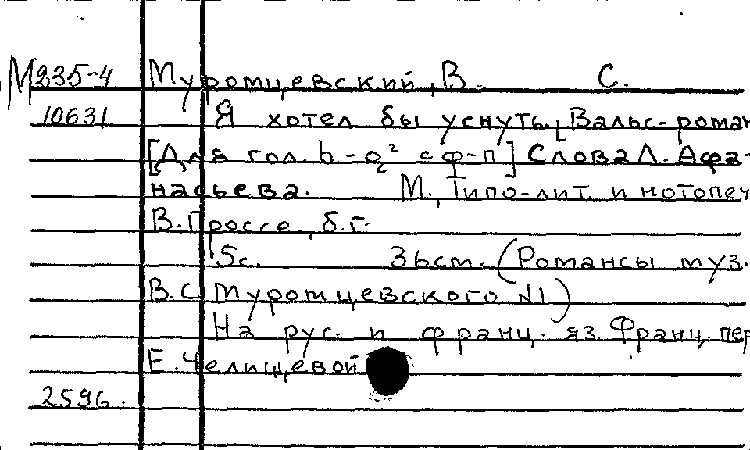 М235-4 Муромцевский, В. С.
10631 Я хотел бы уснуть. Вальс-роман
[Для гол. h-g² с ф-п] Слова Л. Афа-
насьева. М., Типо-лит. и нотопеч
В. Гроссе, б.г.
5с. 36см. (Романсы муз.
В.С. Муромцевского №1)
На рус. и франц. яз. Франц. пер
Е. Челищевой
2596.